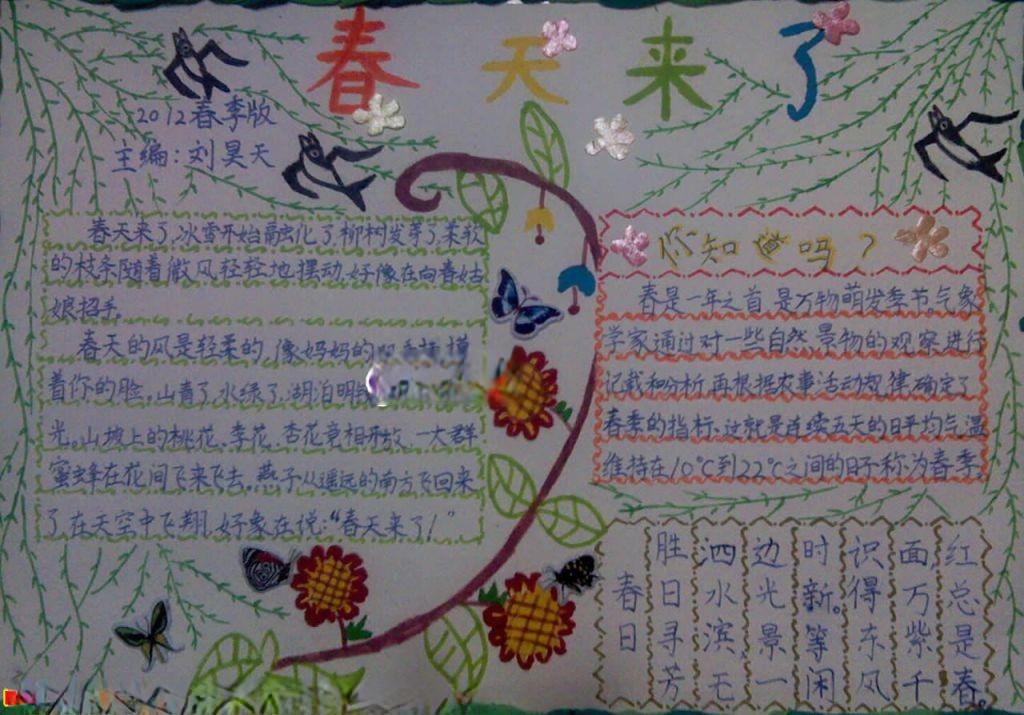 春天来了
2012春季版
主编：刘昊天
春天来了，冰雪开始融化了，柳树发芽了，柔软
的枝条随着微风轻轻地摆动，好像在向春姑
娘招手。
春天的风是轻柔的，像妈妈的
着你的脸。山青了，水绿了，湖泊明
光。山坡上的桃花、李花、杏花竞相开放，一大群
蜜蜂在花间飞来飞去。燕子从遥远的南方飞回来
了，在天空中飞翔，好象在说：“春天来了！”
你知道吗？
春是一年之首，是万物萌发季节。气象
学家通过对一些自然景物的观察进行
记载和分析，再根据农事活动规律确定了
春季的指标，这就是连续五天的日平均气温
维持在10℃到22℃之间的日子称为春季
春日
胜日寻芳
泗水滨，无
边光景一
时新。等闲
识得东风
面，万紫千
红总是春。